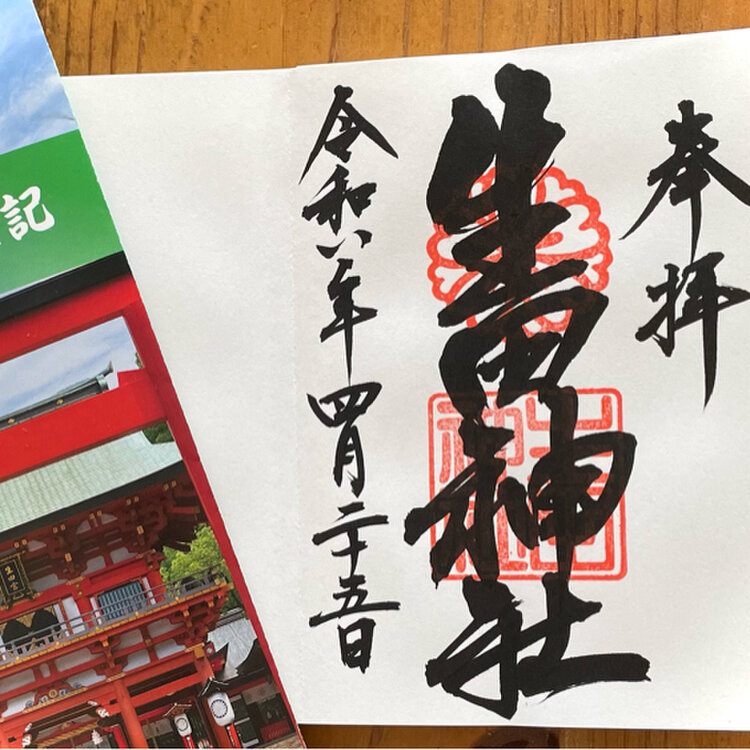 奉拝
生田神社
令和六年四月二十五日
記
生田宮